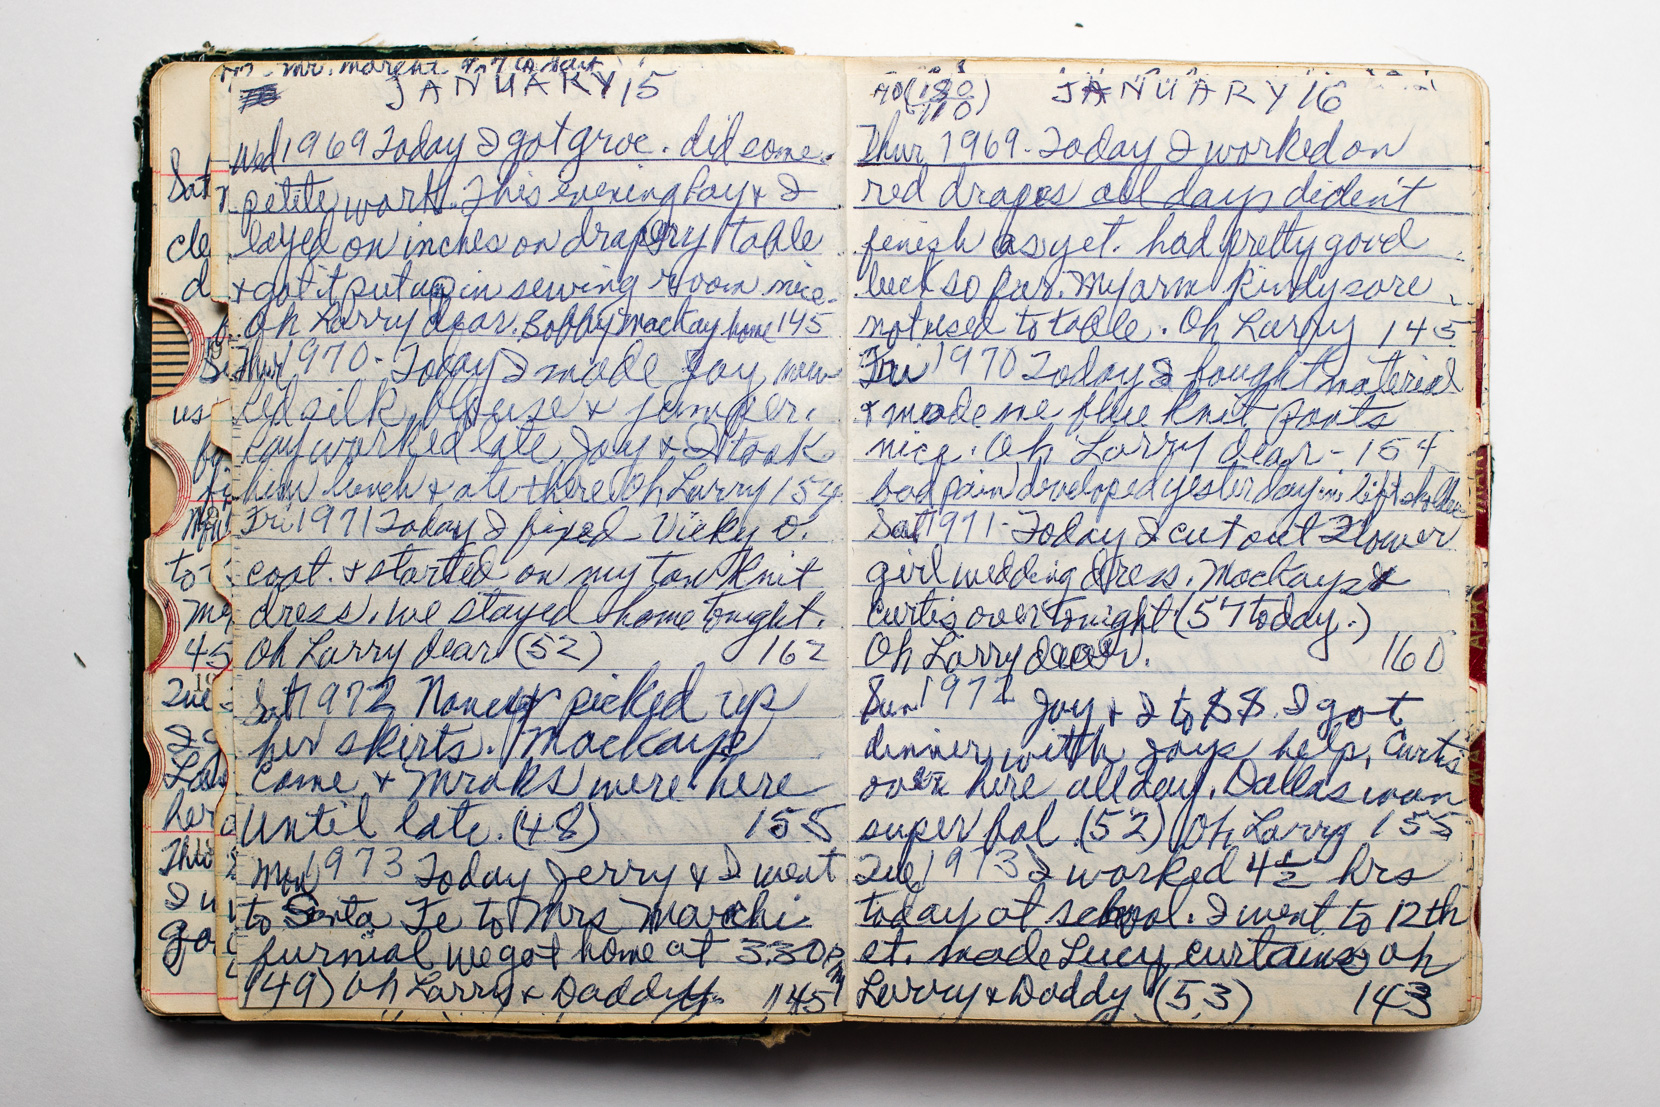 JANUARY 15
Wed 1969 Today I got groc. did some
petite work. This evening Ray & I
layed on inches on drapery table
& got it put up in sewing room nice.
Oh Larry dear. Bobby Mackay home 145
Thur 1970 - Today I made Joy new
red silk blouse & jumper.
Ray worked late Joy & I took
him lunch & ate there Oh Larry 154
Fri 1971 Today I fixed Vicky O.
coat. & started on my tan knit
dress. we stayed home tonight.
Oh Larry dear (52) 162
Sat 1972 Nancy picked up
her skirts. Mackays
come & Mraks were here
until late. (48) 155
Mon 1973 Today Jerry & I went
to Santa Fe to Mrs Marchi
furnial we got home at 3:30 PM
(49) Oh Larry & Daddy 145
Sat
cle
d
us
to
45
I g
her
I w
go
(180/110)
JANUARY 16
Thur 1969 - Today I worked on
red drapes all days dident
finish as yet. had pretty good
luck so far. My arm kindy sore
not used to table. Oh Larry 145
Fri 1970 Today I bought material
& made me blue knit pants
nice. Oh Larry dear - 154
bad pain developed yesterday in left sholder
Sat 1971 - Today I cut out Flower
girl wedding dress. Mackays &
Curtis over tonight (57 today.)
Oh Larry dear. 160
Sun 1972 Joy & I to SS. I got
dinner with Joys help. Curtis
over here all day. Dallas won
super bol (52) Oh Larry 155
Tue 1973 I worked 4 1/2 hrs
today at school. I went to 12th
st. made Lucy curtains Oh
Larry & Daddy (53) 143
MAR
APR
MA